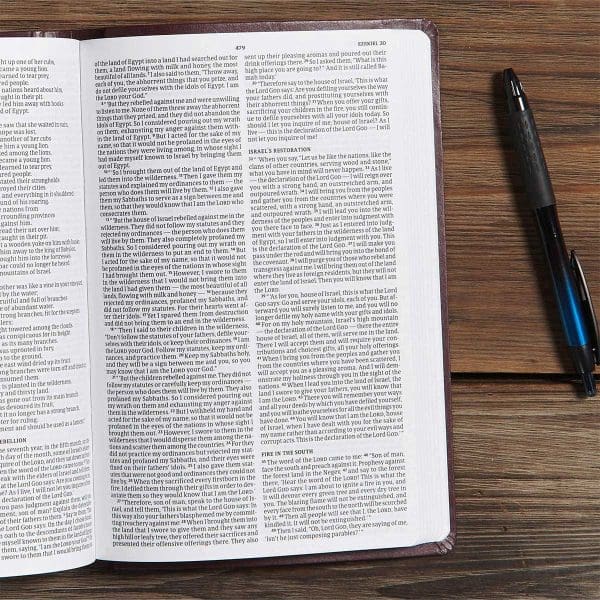 ught up one of her cubs,
came a young lion.
d learned to tear prey,
ed people.
e nations heard about him,
ed him away with hooks
d of Egypt.
saw that she waited in vain,
hope was lost.
nother of her cubs
e him a young lion.
d among the lions,
came a young lion.
d learned to tear prey,
ed people.
astated their strongholds
troyed their cities.
and everything in it shuddered
nd of his roaring.
he nations from
urrounding provinces
gainst him.
read their net over him;
caught in their pit.
ut a wooden yoke on him with hooks
him away to the king of Babylon.
ght him into the fortresses
oar could no longer be heard
ountains of Israel.
other was like a vine in your vineyard,
by the water;
ruitful and full of branches
e of abundant water.
strong branches, fit for the scepters
htowered among the clouds.
as conspicuous in its height
as its many branches
was uprooted in fury,
n to the ground,
e east wind dried up its fruit.
ng branches were torn off and dried up;
nsumed them.
it is planted in the wilderness,
ry and thirsty land.
gone out from its main branch
as devoured its fruit,
at it no longer has a strong branch,
er for ruling.
ament and should be used as a lament."
EBELLION
he seventh year, in the fifth month, on
479
EZEKIEL 20
of the land of Egypt into a land I had searched out for
them, a land flowing with milk and honey, the most
beautiful of all lands. 7 I also said to them, "Throw away,
each of you, the abhorrent things that you prize, and
do not defile yourselves with the idols of Egypt. I am
the LORD your God."
8 "But they rebelled against me and were unwilling
to listen to me. None of them threw away the abhorrent
things that they prized, and they did not abandon the
idols of Egypt. So I considered pouring out my wrath
on them, exhausting my anger against them with-
in the land of Egypt. 9 But I acted for the sake of my
name, so that it would not be profaned in the eyes of
the nations they were living among, in whose sight I
had made myself known to Israel by bringing them
out of Egypt.
10 "So I brought them out of the land of Egypt and
led them into the wilderness. 11 Then I gave them my
statutes and explained my ordinances to them — the
person who does them will live by them. 12 I also gave
them my Sabbaths to serve as a sign between me and
them, so that they would know that I am the LORD who
consecrates them.
13 "But the house of Israel rebelled against me in the
wilderness. They did not follow my statutes and they
rejected my ordinances — the person who does them
will live by them. They also completely profaned my
Sabbaths. So I considered pouring out my wrath on
them in the wilderness to put an end to them. 14 But I
acted for the sake of my name, so that it would not be
profaned in the eyes of the nations in whose sight I
had brought them out. 15 However, I swore to them
in the wilderness that I would not bring them into the
land I had given them — the most beautiful of all
lands, flowing with milk and honey — 16 because they
rejected my ordinances, profaned my Sabbaths, and
did not follow my statutes. For their hearts went af-
ter their idols. 17 Yet I spared them from destruction
and did not bring them to an end in the wilderness.
18 "Then I said to their children in the wilderness,
'Don't follow the statutes of your fathers, defile your-
selves with their idols, or keep their ordinances. 19 I am
the LORD your God. Follow my statutes, keep my ordi-
nances, and practice them. 20 Keep my Sabbaths holy,
and they will be a sign between me and you, so you
may know that I am the LORD your God.'
21 "But the children rebelled against me. They did not
follow my statutes or carefully keep my ordinances —
the person who does them will live by them. They also
profaned my Sabbaths. So I considered pouring out
my wrath on them and exhausting my anger against
them in the wilderness. 22 But I withheld my hand and
acted for the sake of my name, so that it would not be
profaned in the eyes of the nations in whose sight I
brought them out. 23 However, I swore to them in the
wilderness that I would disperse them among the na-
tions and scatter them among the countries. 24 For they
did not practice my ordinances but rejected my stat-
utes and profaned my Sabbaths, and their eyes were
fixed on their fathers' idols. 25 I also gave them stat-
utes that were not good and ordinances they could not
live by. 26 When they sacrificed every firstborn in the
fire, I defiled them through their gifts in order to dev-
astate them so they would know that I am the LORD.
27 "Therefore, son of man, speak to the house of Is-
rael, and tell them, 'This is what the Lord GOD says: In
this way also your fathers blasphemed me by commit-
ting treachery against me: 28 When I brought them into
the land that I swore to give them and they saw any
high hill or leafy tree, they offered their sacrifices and
presented their offensive offerings there. They also
sent up their pleasing aromas and poured out their
drink offerings there. 29 So I asked them, "What is this
high place you are going to?" And it is still called Ba-
mah today.'
30 "Therefore say to the house of Israel, 'This is what
the Lord GOD says: Are you defiling yourselves the way
your fathers did, and prostituting yourselves with
their abhorrent things? 31 When you offer your gifts,
sacrificing your children in the fire, you still contin-
ue to defile yourselves with all your idols today. So
should I let you inquire of me, house of Israel? As I
live — this is the declaration of the Lord GOD — I will
not let you inquire of me!
ISRAEL'S RESTORATION
32 "'When you say, "Let us be like the nations, like the
clans of other countries, serving wood and stone,"
what you have in mind will never happen. 33 As I live
— the declaration of the Lord GOD — I will reign over
you with a strong hand, an outstretched arm, and
outpoured wrath. 34 I will bring you from the peoples
and gather you from the countries where you were
scattered, with a strong hand, an outstretched arm,
and outpoured wrath. 35 I will lead you into the wil-
derness of the peoples and enter into judgment with
you there face to face. 36 Just as I entered into judg-
ment with your fathers in the wilderness of the land
of Egypt, so I will enter into judgment with you. This
is the declaration of the Lord GOD. 37 I will make you
pass under the rod and will bring you into the bond of
the covenant. 38 I will purge you of those who rebel and
transgress against me. I will bring them out of the land
where they live as foreign residents, but they will not
enter the land of Israel. Then you will know that I am
the LORD.
39 "'As for you, house of Israel, this is what the Lord
GOD says: Go and serve your idols, each of you. But af-
terward you will surely listen to me, and you will no
longer defile my holy name with your gifts and idols.
40 For on my holy mountain, Israel's high mountain
— the declaration of the Lord GOD — there the entire
house of Israel, all of them, will serve me in the land.
There I will accept them and will require your con-
tributions and choicest gifts, all your holy offerings.
41 When I bring you from the peoples and gather you
from the countries where you have been scattered, I
will accept you as a pleasing aroma. And I will dem-
onstrate my holiness through you in the sight of the
nations. 42 When I lead you into the land of Israel, the
land I swore to give your fathers, you will know that
I am the LORD. 43 There you will remember your ways
and all your deeds by which you have defiled yourself,
and you will loathe yourselves for all the evil things you
have done. 44 You will know that I am the LORD, house
of Israel, when I have dealt with you for the sake of
my name rather than according to your evil ways and
corrupt acts. This is the declaration of the Lord GOD.'"
FIRE IN THE SOUTH
45 The word of the LORD came to me: 46 "Son of man,
face the south and preach against it. Prophesy against
the forest land in the Negev, 47 and say to the forest
there, 'Hear the word of the LORD! This is what the
Lord GOD says: I am about to ignite a fire in you, and
it will devour every green tree and every dry tree in
you. The blazing flame will not be extinguished, and
every face from the south to the north will be scorched
by it. 48 Then all people will see that I, the LORD, have
kindled it. It will not be extinguished.'"
49 Then I said, "Oh, Lord GOD, they are saying of me,
'Isn't he just composing parables?'"